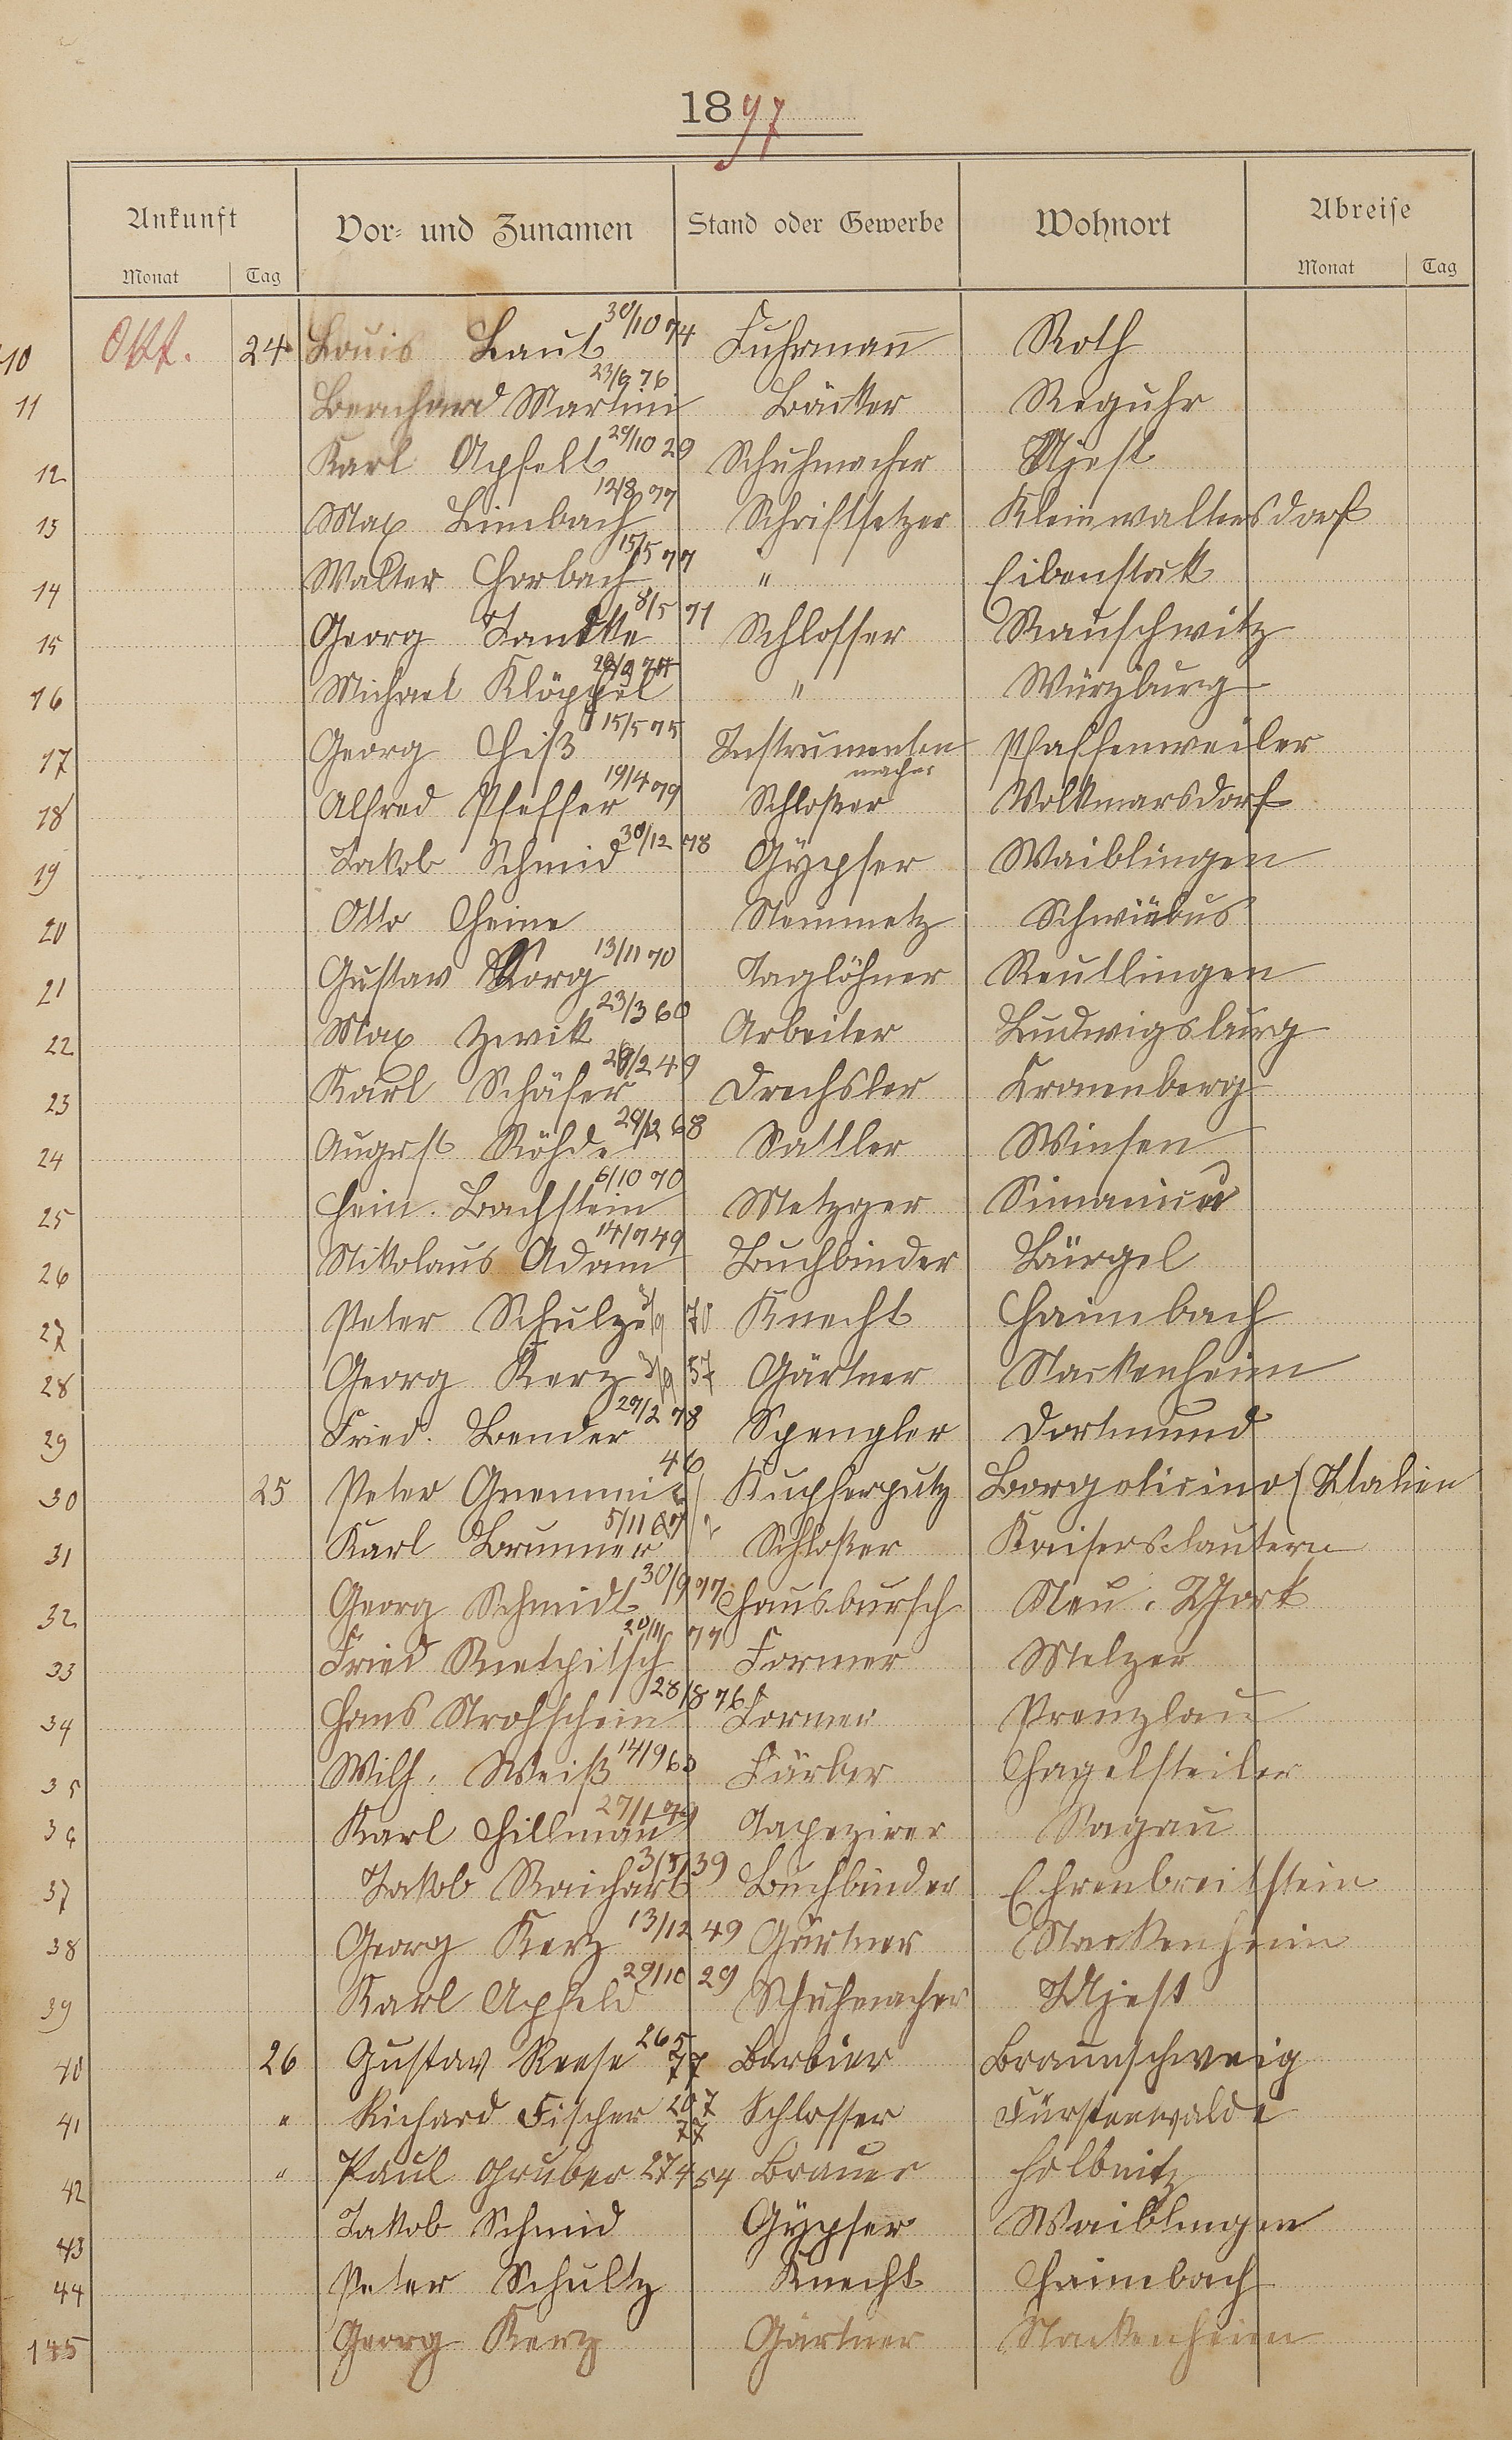 1897
Ankunft Vor- und Zunamen Stand oder Gewerbe Wohnort Abreise
Monat Tag Monat Tag
10 Okt. 24 Louis Laut 30/10 74 Fuhrmann Roth
11 Bernhard Martini 23/9 76 Bäcker Reguhr
12 Karl Apfelt 29/10 29 Schuhmacher Ujest
13 Max Limbach 12/8 77 Schriftsetzer Kleinwaltersdorf
14 Walter Horbach 15/5 77 " Eibenstock
15 Georg Tandke 8/5 71 Schlosser Rauschwitz
16 Michael Klöppel " Würzburg
17 Georg Hiß 15/5 75 Instrumentenmacher Pfaffenweiler
18 Alfred Pfeffer 19/4 79 Schlosser Volkmarsdorf
19 Jakob Schmid 30/12 78 Gypser Waiblingen
20 Otto Heine Steinmetz Schwiebus
21 Gustav Korg 13/11 70 Taglöhner Reutlingen
22 Max Zwick 23/3 60 Arbeiter Ludwigsburg
23 Karl Schäfer 28/2 49 Drechsler Kronenberg
24 August Röhde 29/12 68 Sattler Winsen
25 Hein. Bachstein 6/10 70 Metzger
26 Nikolaus Adam 14/7 49 Buchbinder Bürgel
27 Peter Schulz 70 Knecht Haimbach
28 Georg Kerz 57 Gärtner Nackenheim
29 Fried. Bender 27/2 78 Spengler Dortmund
30 25 Peter 46 Kupferputz Borgoticino (Italien
31 Karl Brunner 5/11 67 Schlosser Kaiserslautern
32 Georg Schmidt 30/9 77 Hausbursch Neu-York
33 Fried 20/11 77 Former Melzer
34 Hans Strohschein 28/8 76 Former Prenzlau
35 Wilh. Weiß 14/9 63 Färber
36 Karl Hillmann 27/1 79 Tapezirer Sagan
37 Jakob Raichart 3/5 39 Buchbinder Ehrenbreitstein
38 Georg Kerz 13/12 49 Gärtner Nackenheim
39 Karl Apfeld 29/10 29 Schuhmacher Ujest
40 26 Gustav Reese 26 5 77 Barbier Braunschweig
41 " Richard Fischer 20 7 77 Schlosser Fürstenwalde
42 " Paul Gruber 27 4 54 Brauer Holbnitz
43 Jakob Schmid Gypser Waiblingen
44 Peter Schultz Knecht Haimbach
145 Georg Kerz Gärtner Nackenheim